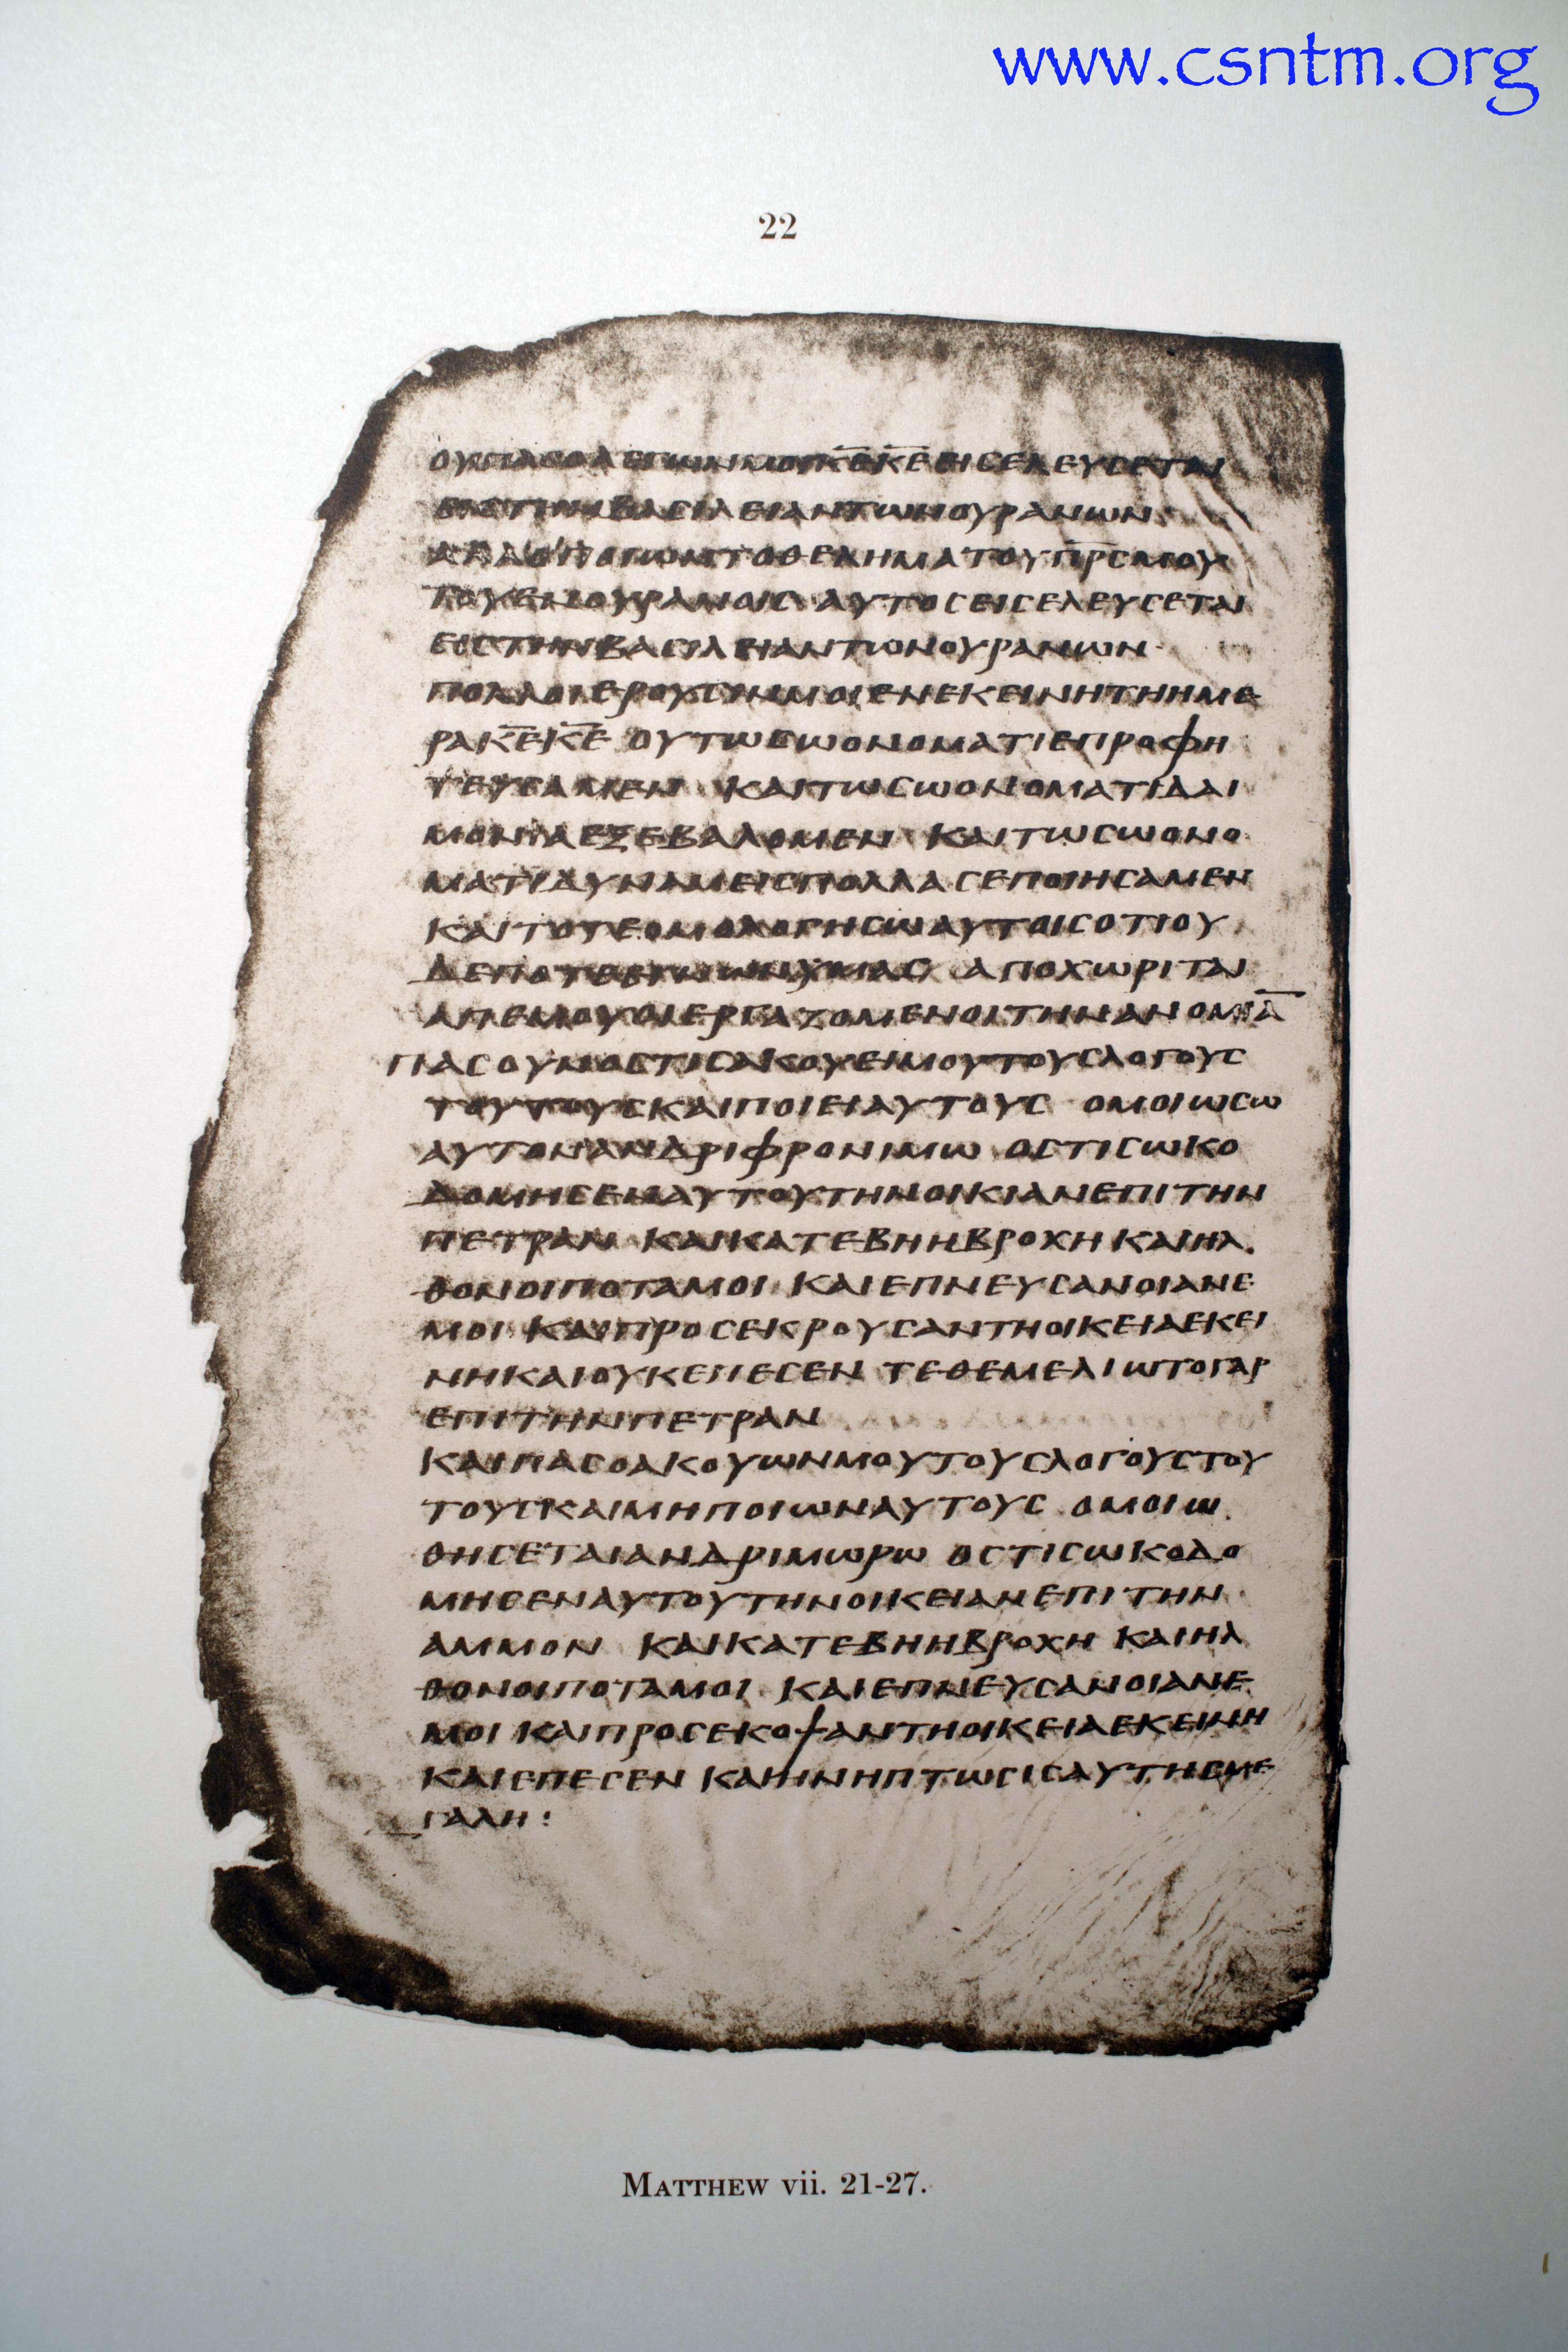 www.csntm.org
22
ΟΥΠΑСΟΛΕΓωΝΜΟΙΚ̅Ε̅Κ̅Ε̅ΕΙСΕΛΕΥСΕΤΑΙ
ΕΙСΤΗΝΒΑСΙΛΕΙΑΝΤωΝΟΥΡΑΝωΝ
ΑΛΛΟΠΟΙωΝΤΟΘΕΛΗΜΑΤΟΥΠ̅Ρ̅С̅ΜΟΥ
ΤΟΥΕΝΟΥΡΑΝΟΙС ΑΥΤΟСΕΙСΕΛΕΥСΕΤΑΙ
ΕΙСΤΗΝΒΑСΙΛΕΙΑΝΤωΝΟΥΡΑΝωΝ
ΠΟΛΛΟΙΕΡΟΥСΙΝΜΟΙΕΝΕΚΕΙΝΗΤΗΗΜΕ
ΡΑΚ̅Ε̅Κ̅Ε̅ ΟΥΤωСωΟΝΟΜΑΤΙΕΠΡΟΦΗ
ΤΕΥСΑΜΕΝ ΚΑΙΤωСωΟΝΟΜΑΤΙΔΑΙ
ΜΟΝΙΑΕΞΕΒΑΛΟΜΕΝ ΚΑΙΤωСωΟΝΟ
ΜΑΤΙΔΥΝΑΜΕΙСΠΟΛΛΑСΕΠΟΙΗСΑΜΕΝ
ΚΑΙΤΟΤΕΟΜΟΛΟΓΗСωΑΥΤΟΙСΟΤΙΟΥ
ΔΕΠΟΤΕΕΓΝωΝΥΜΑС ΑΠΟΧωΡΙΤΑΙ
ΑΠΕΜΟΥΟΙΕΡΓΑΖΟΜΕΝΟΙΤΗΝΑΝΟΜΙΑ̅
ΠΑСΟΥΝΟСΤΙСΑΚΟΥΕΙΜΟΥΤΟΥСΛΟΓΟΥС
ΤΟΥΤΟΥСΚΑΙΠΟΙΕΙΑΥΤΟΥС ΟΜΟΙωСω
ΑΥΤΟΝΑΝΔΡΙΦΡΟΝΙΜω ΟСΤΙСωΚΟ
ΔΟΜΗСΕΝΑΥΤΟΥΤΗΝΟΙΚΙΑΝΕΠΙΤΗΝ
ΠΕΤΡΑΝ ΚΑΙΚΑΤΕΒΗΗΒΡΟΧΗΚΑΙΗΛ
ΘΟΝΟΙΠΟΤΑΜΟΙ ΚΑΙΕΠΝΕΥСΑΝΟΙΑΝΕ
ΜΟΙ ΚΑΙΠΡΟСΕΚΡΟΥСΑΝΤΗΟΙΚΕΙΑΕΚΕΙ
ΝΗΚΑΙΟΥΚΕΠΕСΕΝ ΤΕΘΕΜΕΛΙωΤΟΓΑΡ
ΕΠΙΤΗΝΠΕΤΡΑΝ
ΚΑΙΠΑСΟΑΚΟΥωΝΜΟΥΤΟΥСΛΟΓΟΥСΤΟΥ
ΤΟΥСΚΑΙΜΗΠΟΙωΝΑΥΤΟΥС ΟΜΟΙω
ΘΗСΕΤΑΙΑΝΔΡΙΜωΡω ΟСΤΙСωΚΟΔΟ
ΜΗСΕΝΑΥΤΟΥΤΗΝΟΙΚΕΙΑΝΕΠΙΤΗΝ
ΑΜΜΟΝ ΚΑΙΚΑΤΕΒΗΗΒΡΟΧΗ ΚΑΙΗΛ
ΘΟΝΟΙΠΟΤΑΜΟΙ ΚΑΙΕΠΝΕΥСΑΝΟΙΑΝΕ
ΜΟΙ ΚΑΙΠΡΟСΕΚΟΨΑΝΤΗΟΙΚΕΙΑΕΚΕΙΝΗ
ΚΑΙΕΠΕСΕΝ ΚΑΙΗΝΗΠΤωСΙСΑΥΤΗСΜΕ
ΓΑΛΗ:
MATTHEW vii. 21-27.